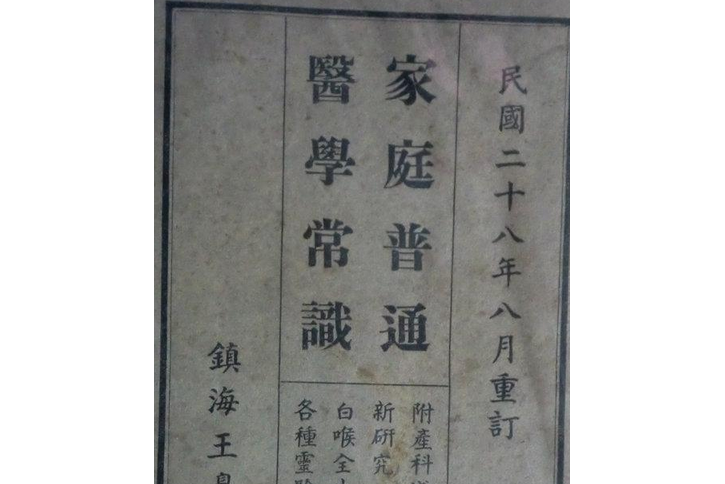 民國二十八年八月重訂
家庭普通
醫學常識
附產科
新研究
白喉全
各種靈
鎮海王